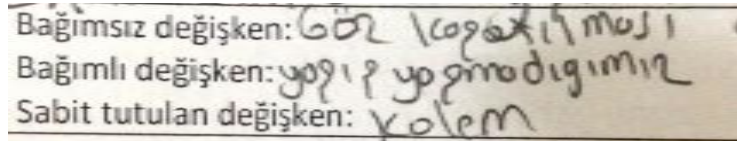 Bağımsız değişken: Göz kapatılması
Bağımlı değişken: yapıp yapmadığımız
Sabit tutulan değişken: kalem